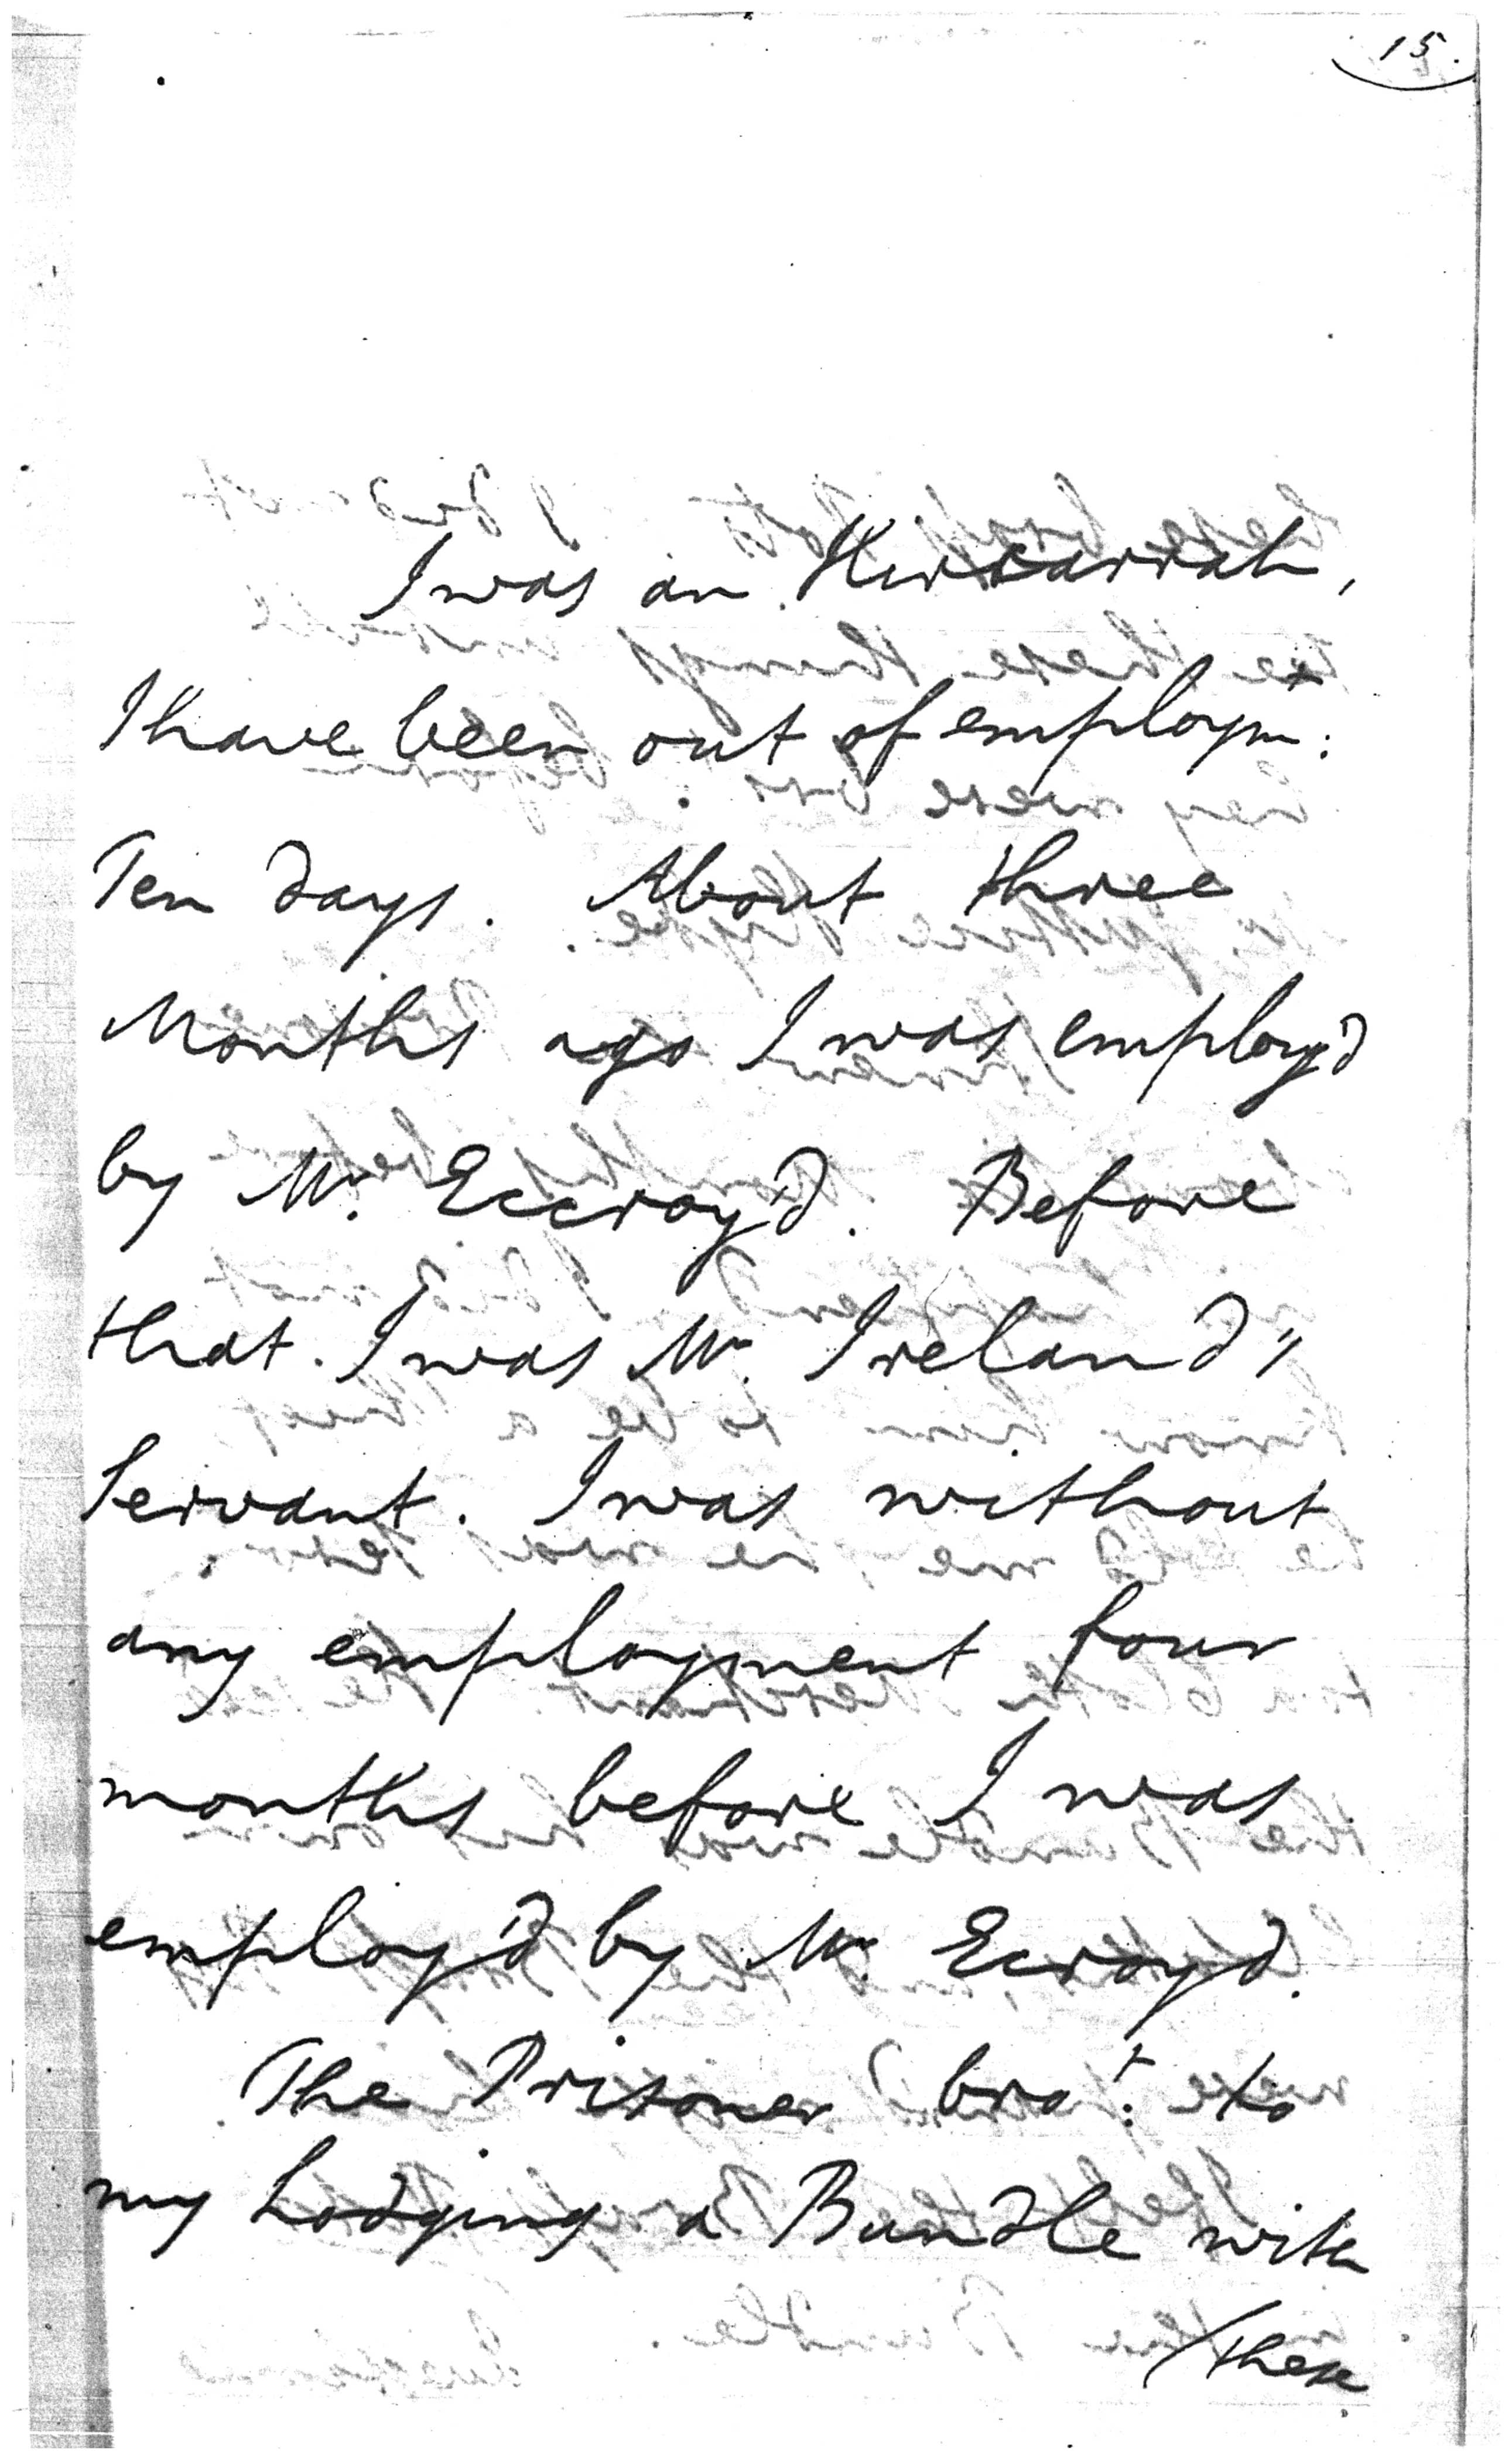 15.
I was an Hircarrah,
I have been out of employmt:
Ten days. About three
Months ago I was employ'd
by Mr. Eccroy'd. Before
that I was Mr. Ireland's
Servant. I was without
any employment four
months before I was
employ'd by Mr. Ecroyd.
The Prisoner brot: to
my Lodging a Bundle with
/these